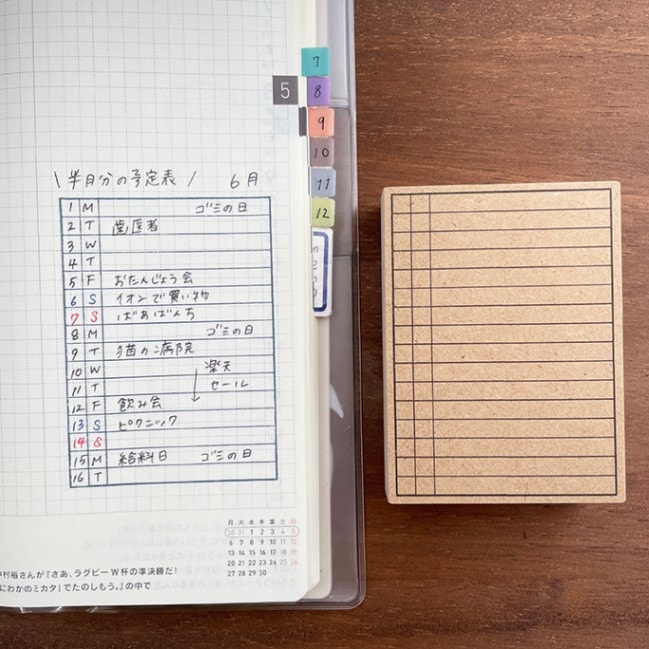 \ 半月分の予定表 / 6月
1 M ゴミの日
2 T 歯医者
3 W
4 T
5 F おたんじょう会
6 S イオンで買い物
7 S ばあばんち
8 M ゴミの日
9 T 猫の病院
10 W 楽天
11 T セール
12 F 飲み会
13 S ピクニック
14 S
15 M 給料日 ゴミの日
16 T
5
7
8
9
10
11
12
月 火 水 木 金 土 日
30 31 1 2 3 4 5
6 7 8 9 10 11 12
13 14 15 16 17 18 19
20 21 22 23 24 25 26
27 28 29 30
村裕さんが『さあ、ラグビーW杯の準決勝だ!
にわかのミカタ』でたのしもう。』の中で